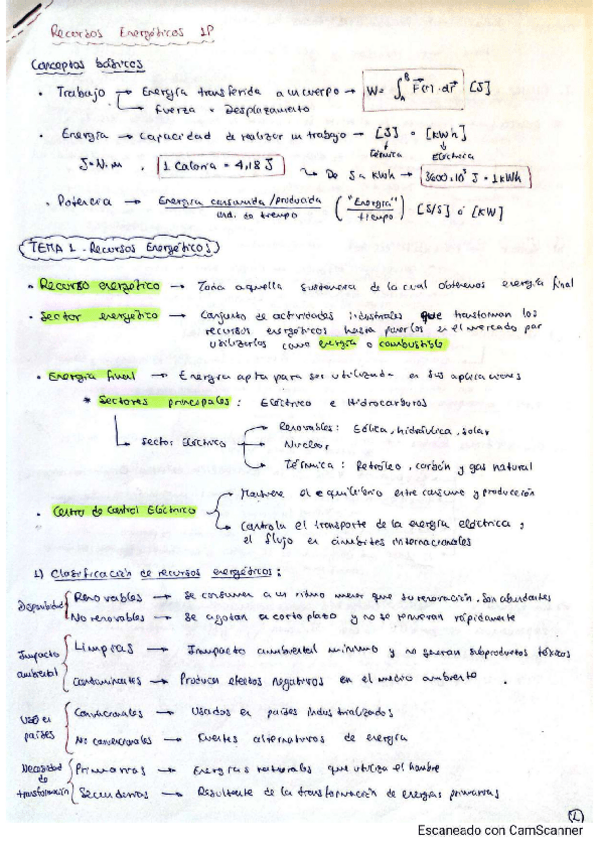 Recursos Energéticos 1P
Conceptos básicos
· Trabajo → Energía transferida a un cuerpo → W = ∫_A^B F(r)·dr [J]
→ Fuerza × Desplazamiento
· Energía → Capacidad de realizar un trabajo → [J] o [kWh]
Térmica Eléctrica
J = N·m . 1 Caloría = 4,18 J ↳ De J a kWh → 3600·10³ J = 1kWh
· Potencia → Energía consumida/producida / und. de tiempo ("Energía"/tiempo) [J/s] ó [kW]
TEMA 1. Recursos Energéticos
· Recurso energético → Toda aquella sustancia de la cual obtenemos energía final
· Sector energético → Conjunto de actividades industriales que transforman los
recursos energéticos hasta ponerlos en el mercado par
utilizarlos como energía o combustible
· Energía final → Energía apta para ser utilizada en sus aplicaciones
* Sectores principales: Eléctrico e Hidrocarburos
↳ Sector Eléctrico → Renovables: Eólica, hidráulica, solar
→ Nuclear
→ Térmica: Petróleo, carbón y gas natural
· Centro de Control Eléctrico → Mantiene el equilibrio entre consumo y producción
→ Controla el transporte de la energía eléctrica y
el flujo en ámbitos internacionales
1) Clasificación de recursos energéticos:
Disponibilidad Renovables → Se consumen a un ritmo menor que su renovación. Son abundantes
No renovables → Se agotan a corto plazo y no se renuevan rápidamente
Impacto ambiental Limpias → Impacto ambiental mínimo y no generan subproductos tóxicos
Contaminantes → Producen efectos negativos en el medio ambiente.
Uso en países Convencionales → Usados en países industrializados
No convencionales → Fuentes alternativas de energía
Necesidad de transformación Primarias → Energías naturales que utiliza el hombre
Secundarias → Resultante de la transformación de energías primarias
1
Escaneado con CamScanner